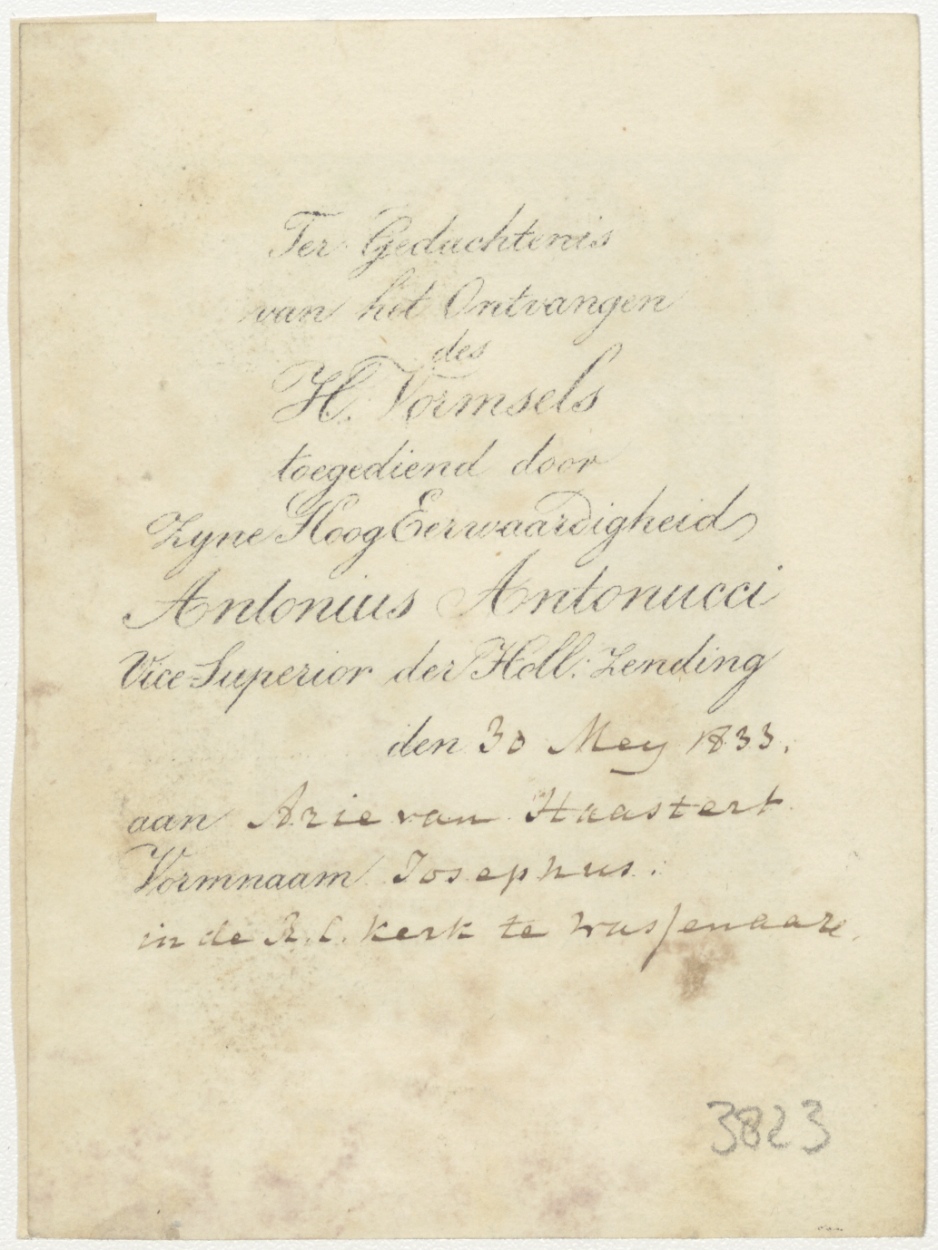 Ter Gedachtenis
van het Ontvangen
des
H. Vormsels
toegediend door
Zyne HoogEerwaardigheid
Antonius Antonucci
Vice-Superior der Holl: Zending
den 30 Mey 1833.
aan Arie van Haastert
Vormnaam Josephus.
in de R. C. Kerk te Wassenaar.
3823